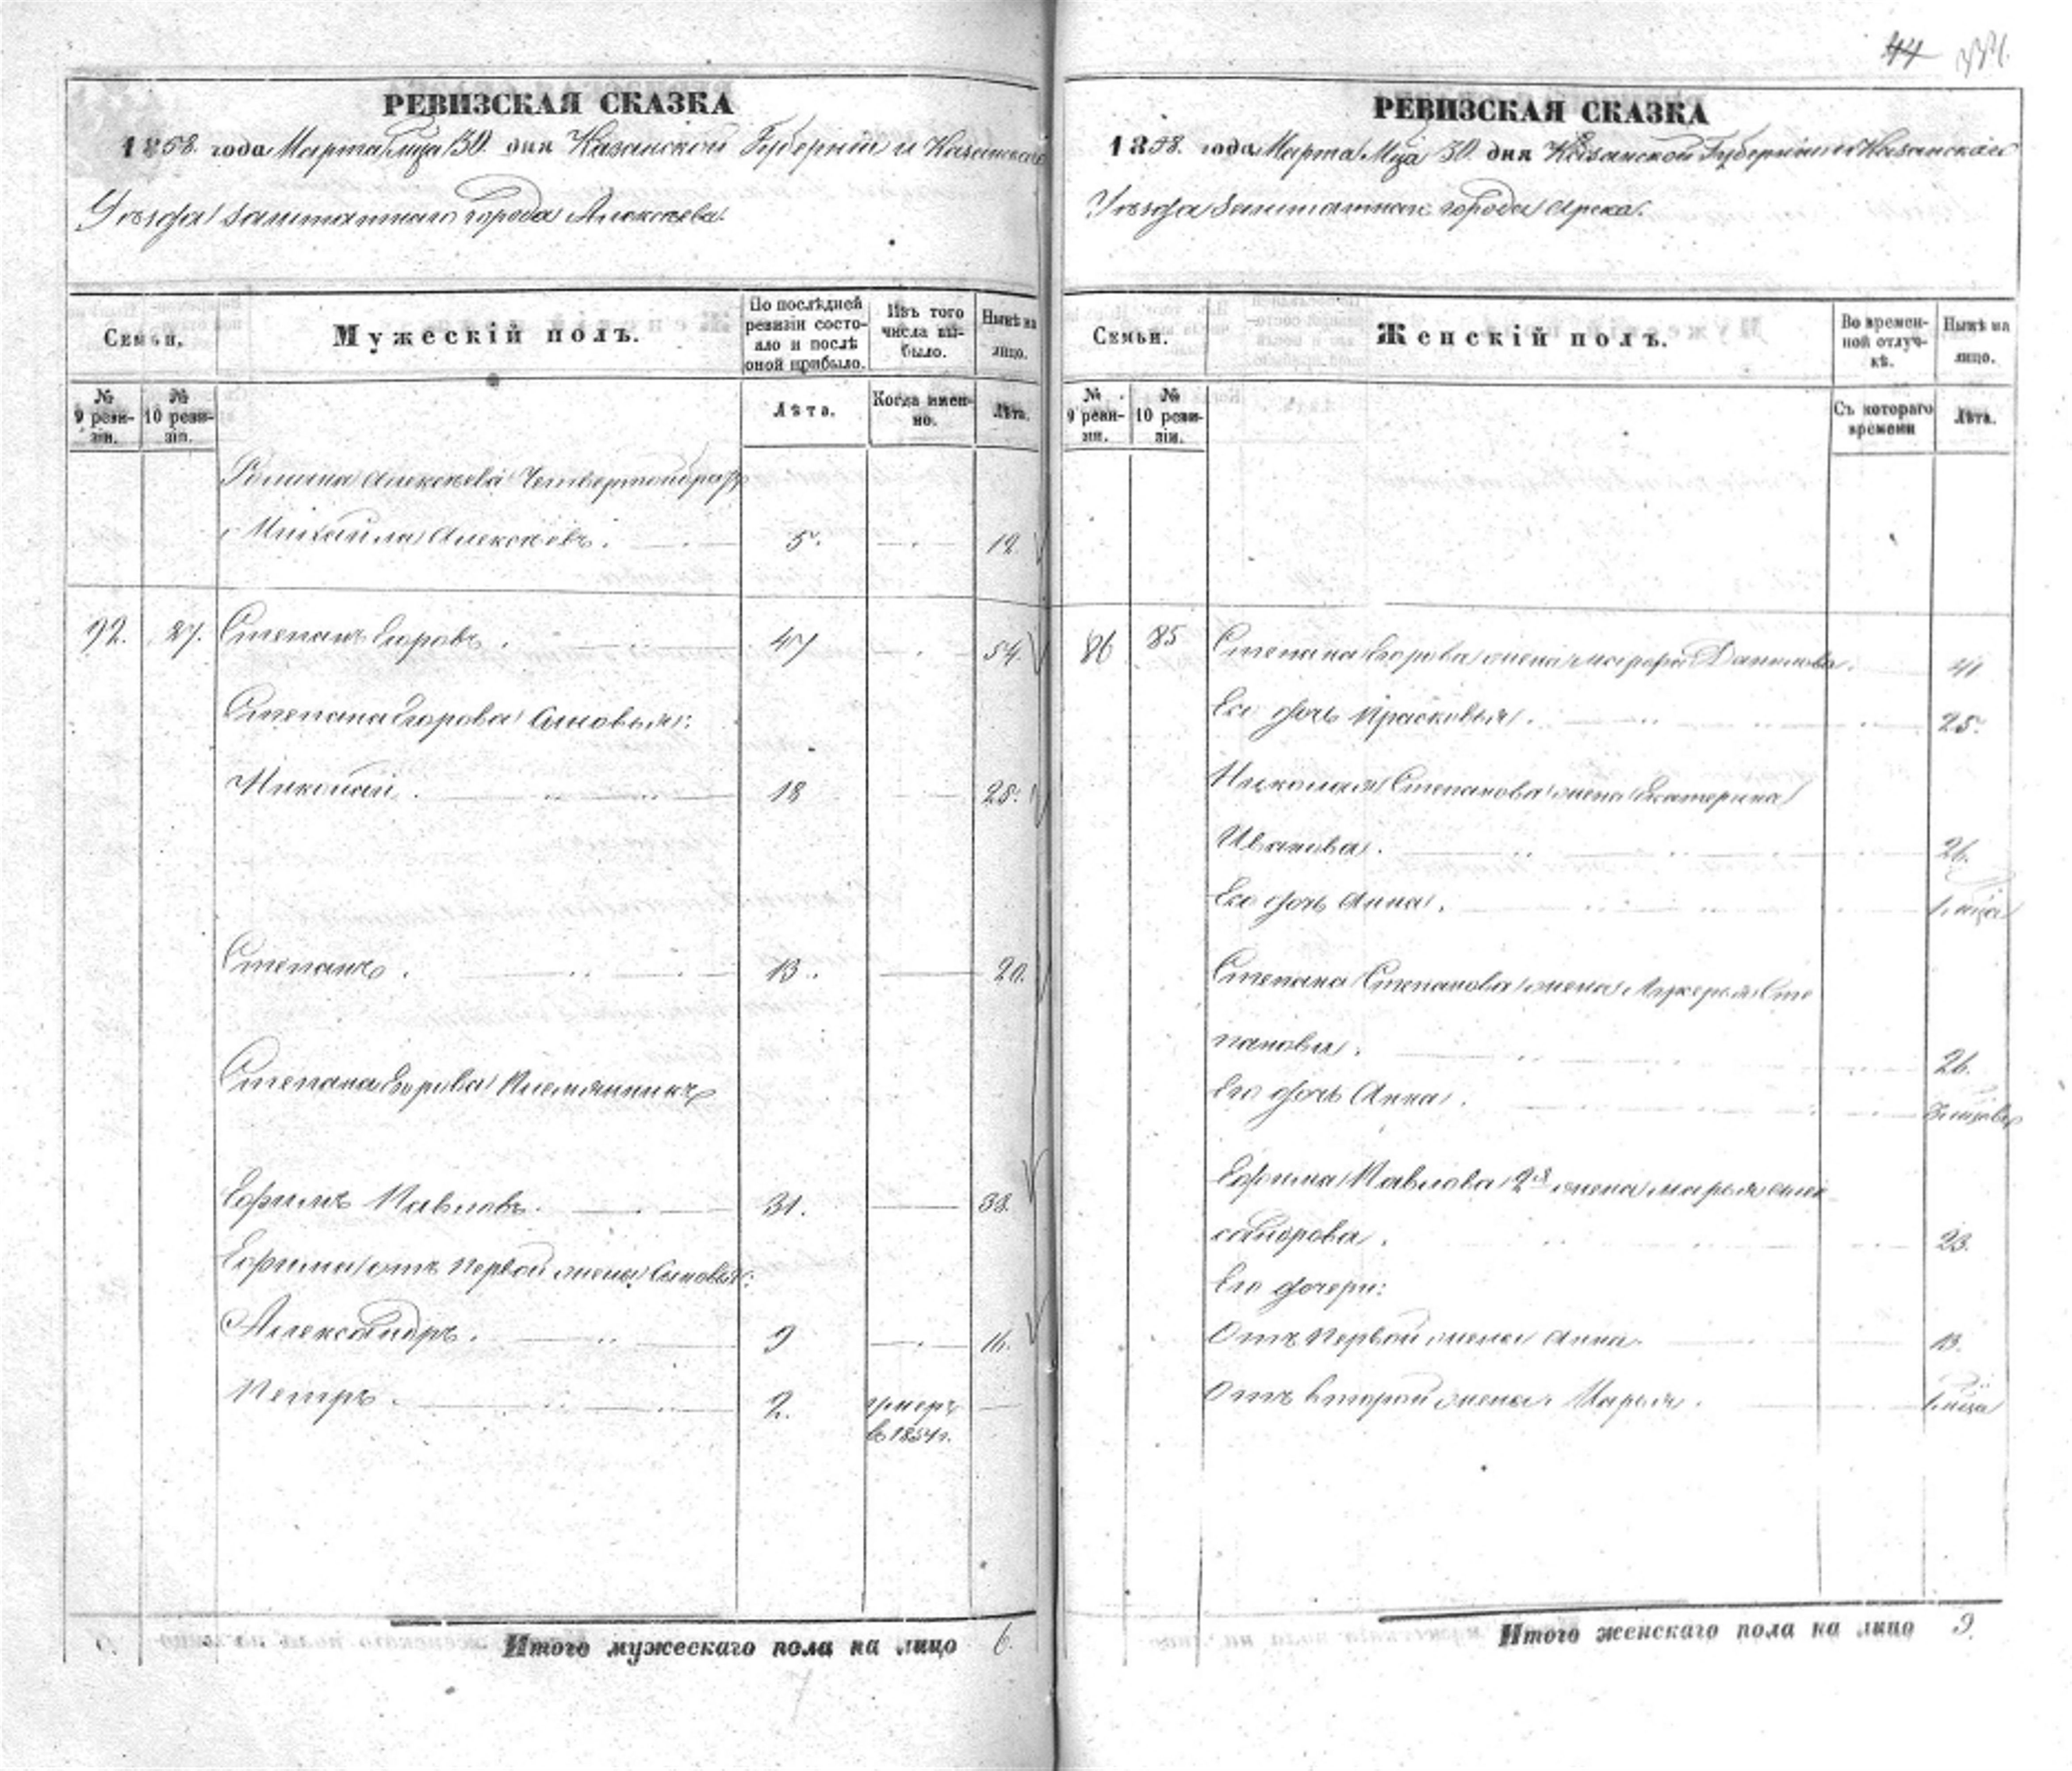 44
РЕВИЗСКАЯ СКАЗКА
1858. года Марта Мца 30. дня Казанской Губерніи и Казанскаго
Уезда заштатнаго города
Семьи,
Мужескій полъ.
По послѣдней ревизіи состояло и послѣ оной прибыло.
Изъ того числа выбыло.
Нынѣ на лицо.
№ 9 ревизіи.
№ 10 ревизіи.
Лѣта.
Когда именно.
Лѣта.
Алексѣева Четвертой братъ
Михайла Алексѣевъ. 5. 12.
92. 87. Степанъ Егоровъ. 47 54.
Степана Егорова Сыновья:
Николай. 18 25.
Степанъ. 13. 20.
Степана Егорова Племянникъ
Ефимъ Павловъ. 31. 38.
Ефима отъ первой жены Сыновья:
Александръ. 9 16.
Петръ. 2. умеръ
в 1854 г.
Итого мужескаго пола на лицо 6.
РЕВИЗСКАЯ СКАЗКА
1858. года Марта Мца 30. дня Казанской Губерніи и Казанскаго
Уезда заштатнаго города Арска.
Семьи.
Женскій полъ.
Во временной отлучкѣ.
Нынѣ на лицо.
№ 9 ревизіи.
№ 10 ревизіи.
Съ котораго времени
Лѣта.
86 85 Степана Егорова жена Марфа Данилова. 41
Его дочь Прасковья. 25.
Николая Степанова жена Екатерина
Иванова. 26.
Его дочь Анна. 1 мца
Степана Степанова жена Лукерья Сте
панова. 26.
Его дочь Анна. 3 мцовъ
Ефима Павлова 2я жена Марья Алек
сандрова. 23.
Его дочери:
Отъ первой жены Анна. 13.
Отъ второй жены Марья. 1 мца
Итого женскаго пола на лицо 9.